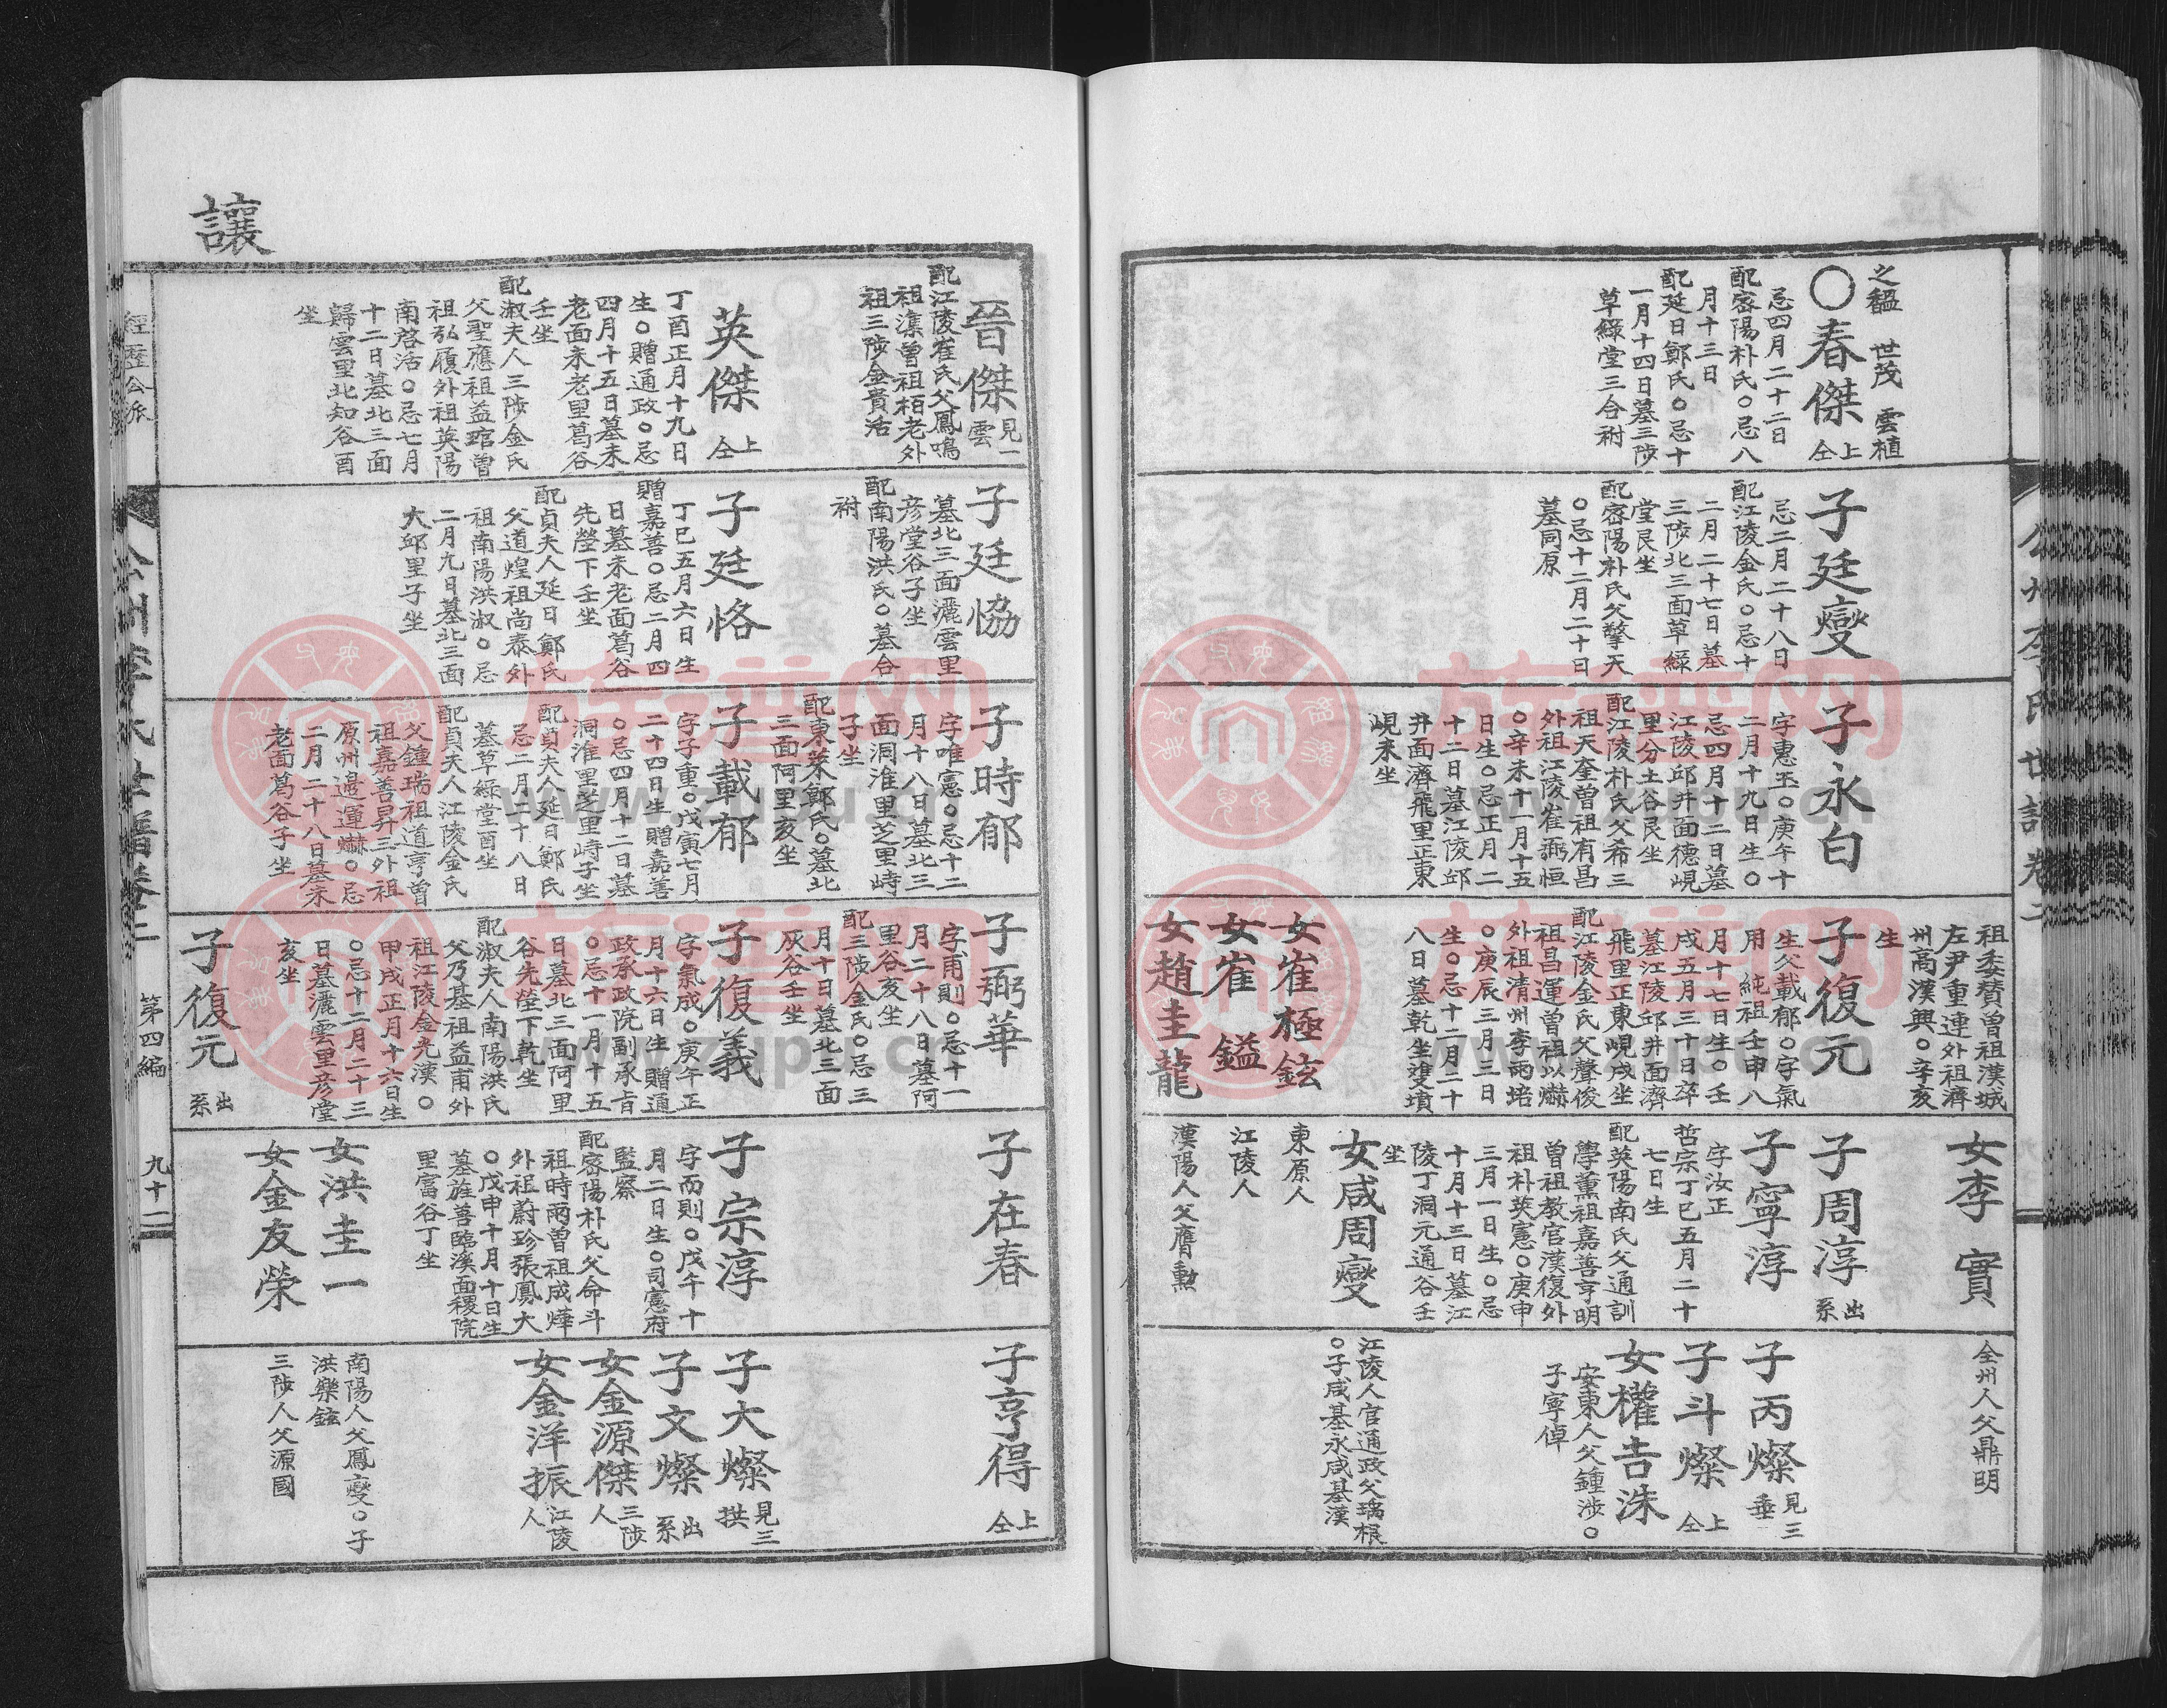 之轀　世茂　雲植
○春傑
上仝
忌四月二十二日
配密陽朴氏○忌八
月十三日
配延日鄭氏○忌十
一月十四日墓三陟
草綠堂三合祔
子廷燮
忌二月二十八日
配江陵金氏○忌十
二月二十七日墓
三陟北三面草綠
堂艮坐
配密陽朴氏父擎天
○忌十二月二十日
墓同原
子永白
字惠玉○庚午十
二月十九日生○
忌四月十二日墓
江陵邱井面德峴
里分土谷艮坐
配江陵朴氏父希三
祖天奎曾祖有昌
外祖江陵崔溺恒
○辛未十一月十五
日生○忌正月二
十二日墓江陵邱
井面濟飛里正東
峴未坐
祖委賛曾祖漢城
左尹重連外祖濟
州高漢興○辛亥
生
子復元
生父載郁○字氣
用　純祖壬申八
月十七日生○壬
戌五月三十日卒
墓江陵邱井面濟
飛里正東峴戌坐
配江陵金氏父聲俊
祖昌運曾祖以爀
外祖清州李雨培
○庚辰三月三日
生○忌十二月二十
八日墓乾坐雙墳
女崔極鉉
女崔　鎰
女趙圭龍
女李　實
子周淳
出系
子寧淳
字汝正
哲宗丁巳五月二十
七日生
配英陽南氏父通訓
學薰祖嘉善亨明
曾祖教官漢復外
祖朴英憲○庚申
三月一日生○忌
十月十三日墓江
陵丁洞元通谷壬
坐
女咸周燮
東原人
江陵人
漢陽人父膺勳
全州人父鼎明
子丙燦
見三垂
子斗燦
上仝
女權吉洙
安東人父鍾涉○
子寧倬
江陵人官通政父瑀根
○子咸基永咸基漢
公州李氏世譜卷二
讓
晉傑
見一雲
配江陵崔氏父鳳鳴
祖濼曾祖栢老外
祖三陟金貴活
英傑
上仝
丁酉正月十九日
生○贈通政○忌
四月十五日墓未
老面末老里葛谷
壬坐
配淑夫人三陟金氏
父聖應祖益琯曾
祖弘履外祖英陽
南啓活○忌七月
十二日墓北三面
歸雲里北知谷酉
坐
子廷恊
墓北三面灑雲里
彦堂谷子坐
配南陽洪氏○墓合
祔
子廷恪
丁巳五月六日生
贈嘉善○忌二月四
日墓末老面葛谷
先塋下壬坐
配貞夫人延日鄭氏
父道煌祖尚泰外
祖南陽洪淑○忌
二月九日墓北三面
大邱里子坐
子時郁
字唯憲○忌十二
月十八日墓北三
面洞淮里芝里峙
子坐
配東萊鄭氏○墓北
三面阿里亥坐
子載郁
字子重○戊寅七月
二十四日生贈嘉善
○忌四月十二日墓
洞淮里芝里峙子坐
配貞夫人延日鄭氏
忌二月二十八日
墓草綠堂酉坐
配貞夫人江陵金氏
父鍾瑞祖道亨曾
祖嘉善昇三外祖
原州邊運爀○忌
二月二十八日墓未
老面葛谷子坐
子弼華
字甫則○忌十一
月二十八日墓阿
里谷亥坐
配三陟金氏○忌三
月十日墓北三面
灰谷壬坐
子復義
字氣成○庚午正
月十六日生贈通
政承政院副承旨
○忌十一月十五
日墓北三面阿里
谷先塋下乾坐
配淑夫人南陽洪氏
父乃基祖益甫外
祖江陵金光漢○
甲戌正月十六日生
○忌十二月二十三
日墓灑雲里彦堂
亥坐
子復元
出系
子在春
子宗淳
字而則○戊午十
月二日生○司憲府
監察
配密陽朴氏父命斗
祖時雨曾祖成燁
外祖蔚珍張鳳大
○戊申十月十日生
墓旌善臨溪面稷院
里富谷丁坐
女洪圭一
女金友榮
子亨得
上仝
子大燦
見三拱
子文燦
出系
女金源傑
三陟人
女金洋振
江陵人
南陽人父鳳燮○子
洪樂鉉
三陟人父源國
經歷公派
公州李氏世譜卷二
第四編
九十二
族譜网
www.zupu.cn